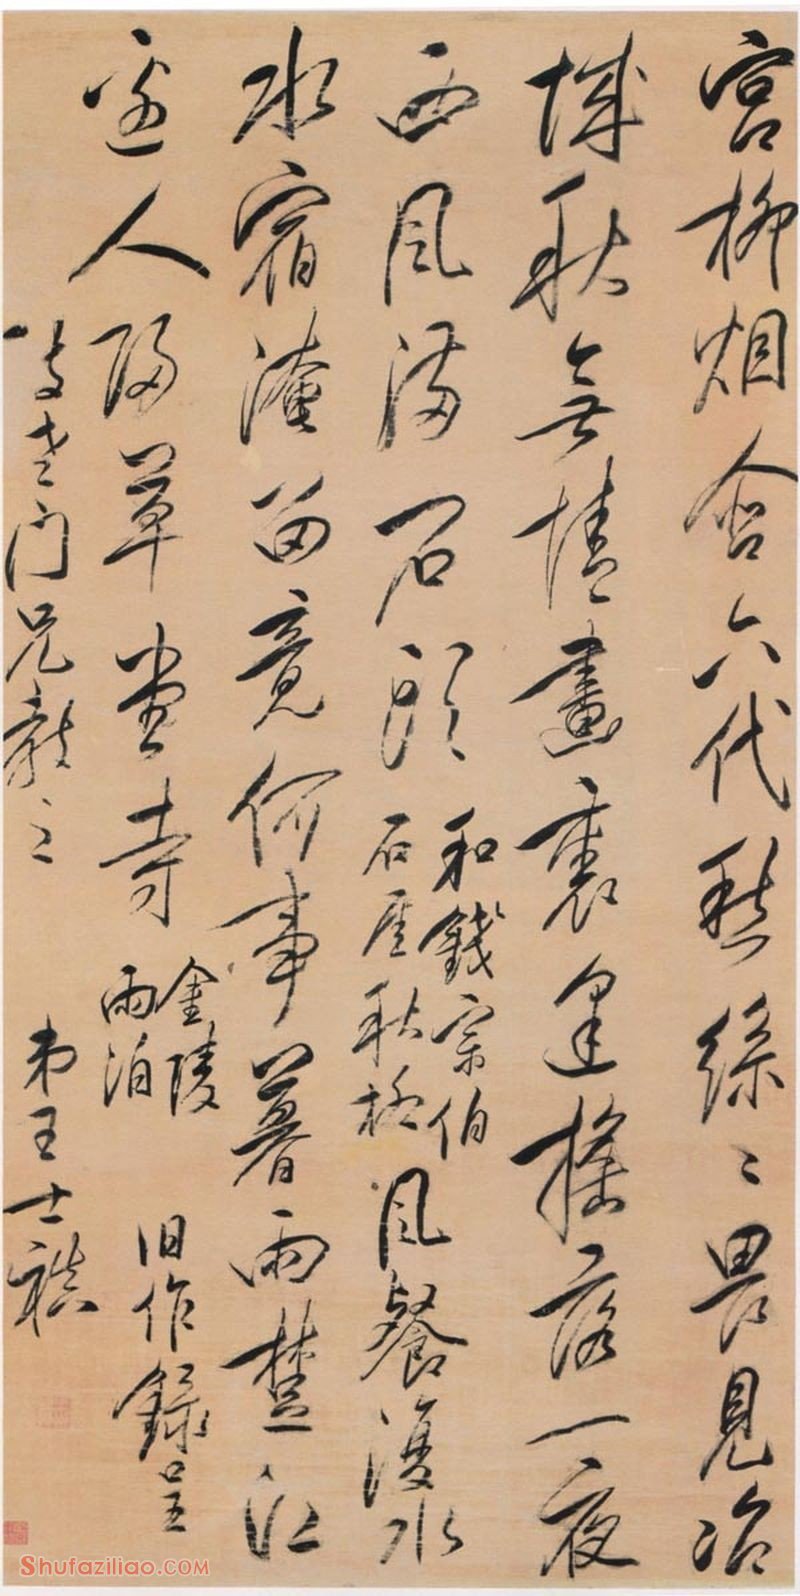 宮柳烟含六代愁絲〻畏見冶
城秋無情畫裏逢摇落一夜
西風滿石頭
和錢宗伯
石崖秋柳
風餐復水
水宿淹留竟何事暮雨楚江
邊人歸草堂寺
金陵
雨泊
旧作錄呈
老門兄教之
弟王士禛
Shufaziliao.com